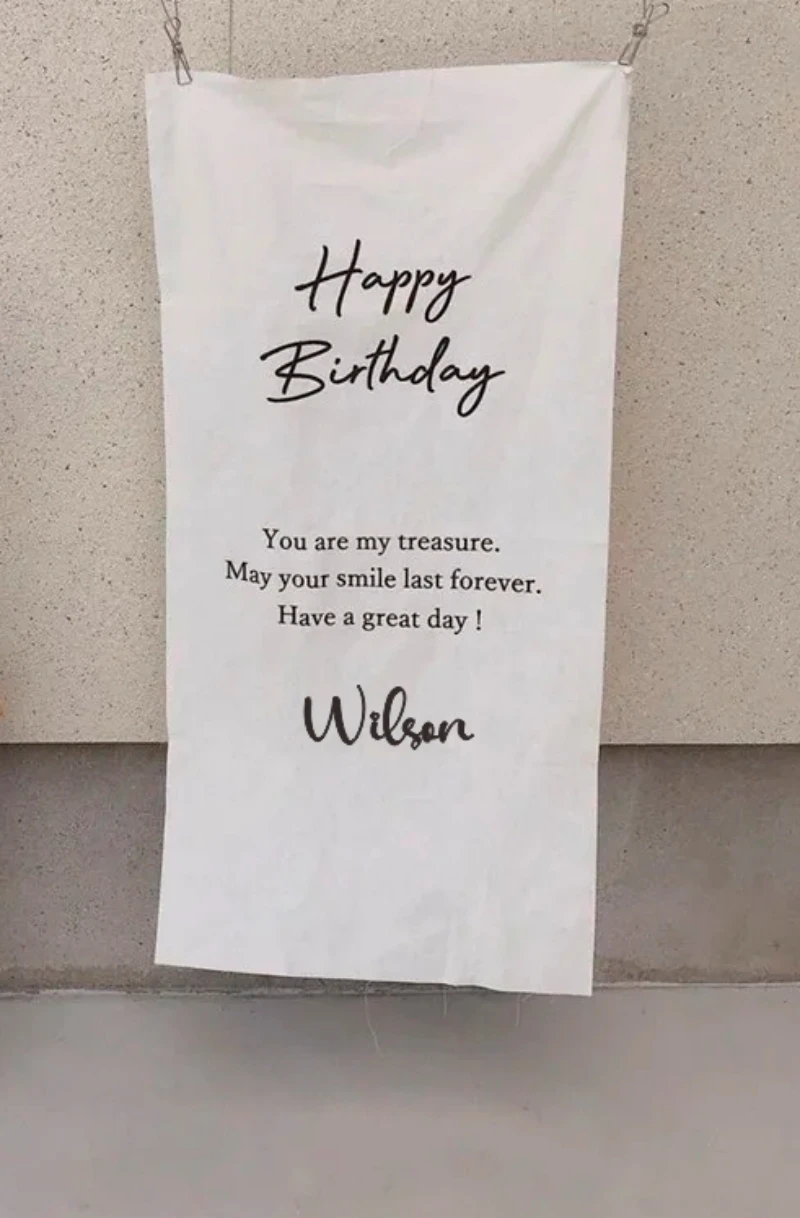 Happy
Birthday
You are my treasure.
May your smile last forever.
Have a great day !
Wilson